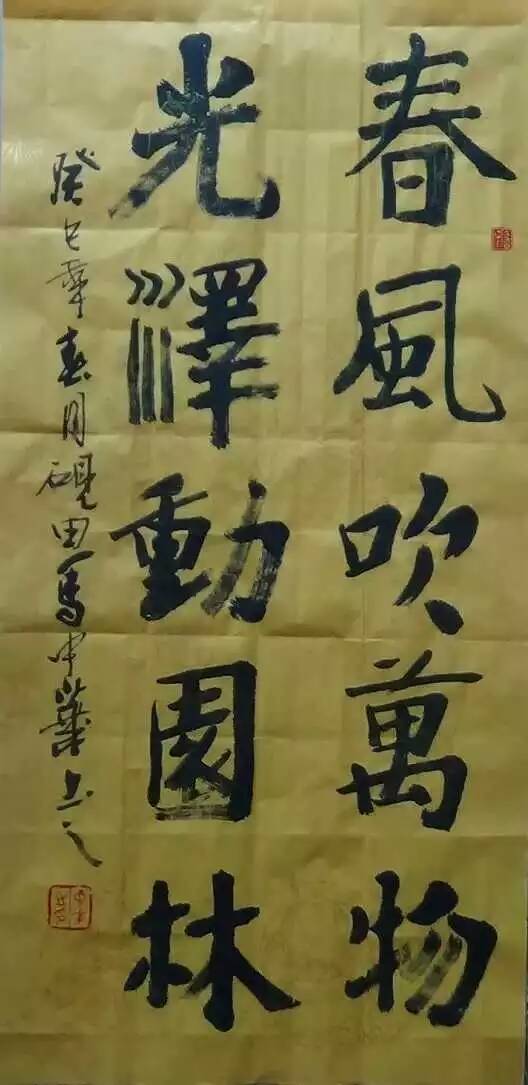 春風吹萬物
光澤動園林
癸巳年春月硯田馬中華書之